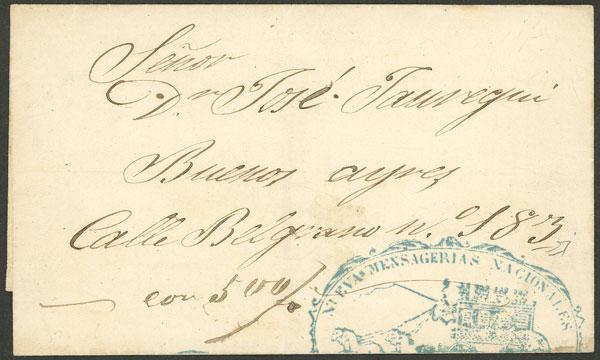 Señor
Dr José Jauregui
Buenos ayres
Calle Belgrano n.º 183
con 500/
NUEVA MENSAGERIAS NACIONALES